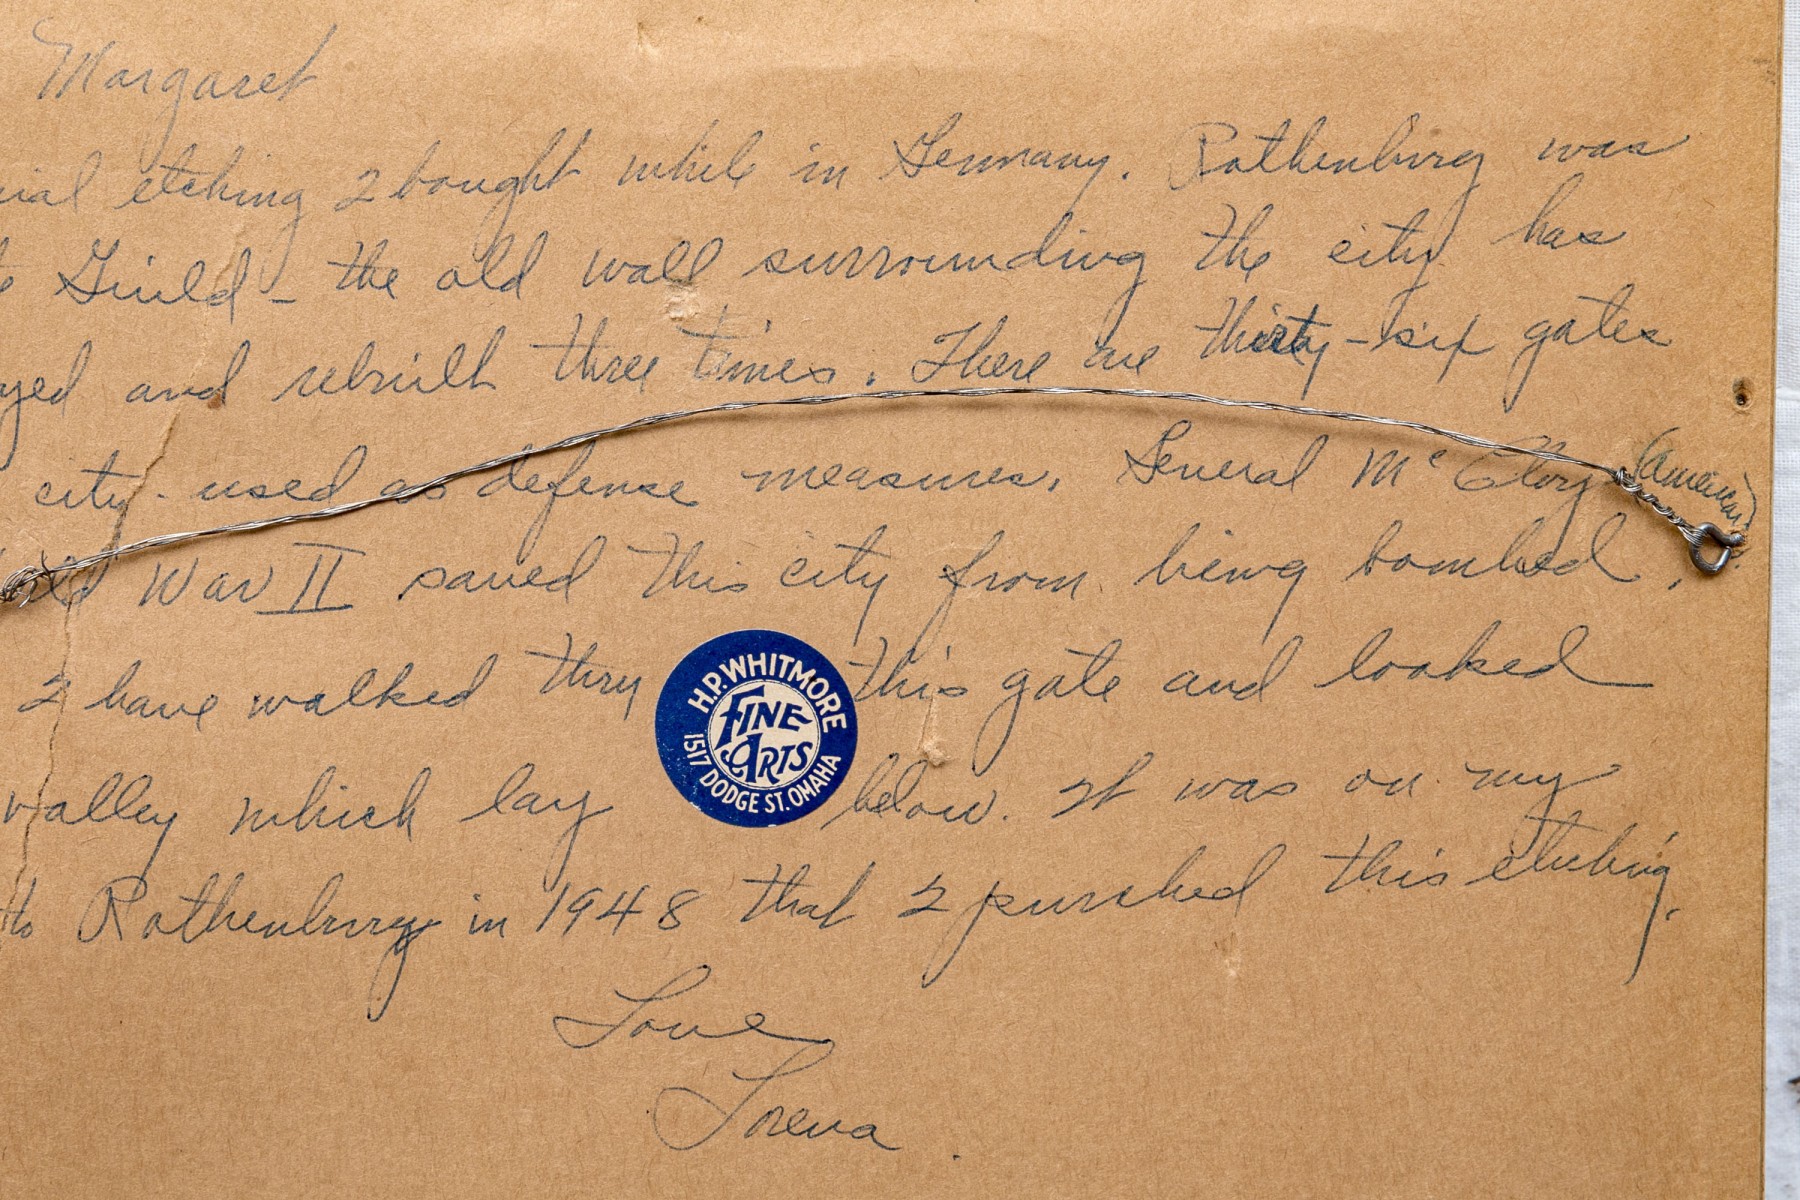 Margaret
ial etching I bought while in Germany. Rothenburg was
Guild - the old wall surrounding the city has
yed and rebuilt three times. There are thirty-six gates
city - used as defense measures. General McCloy (American)
War II saved this city from being bombed.
I have walked thru this gate and looked
valley which lay below. It was on my
to Rothenburg in 1948 that I purched this etching.
Love
Lorena
H.P. WHITMORE
FINE
ARTS
1517 DODGE ST. OMAHA